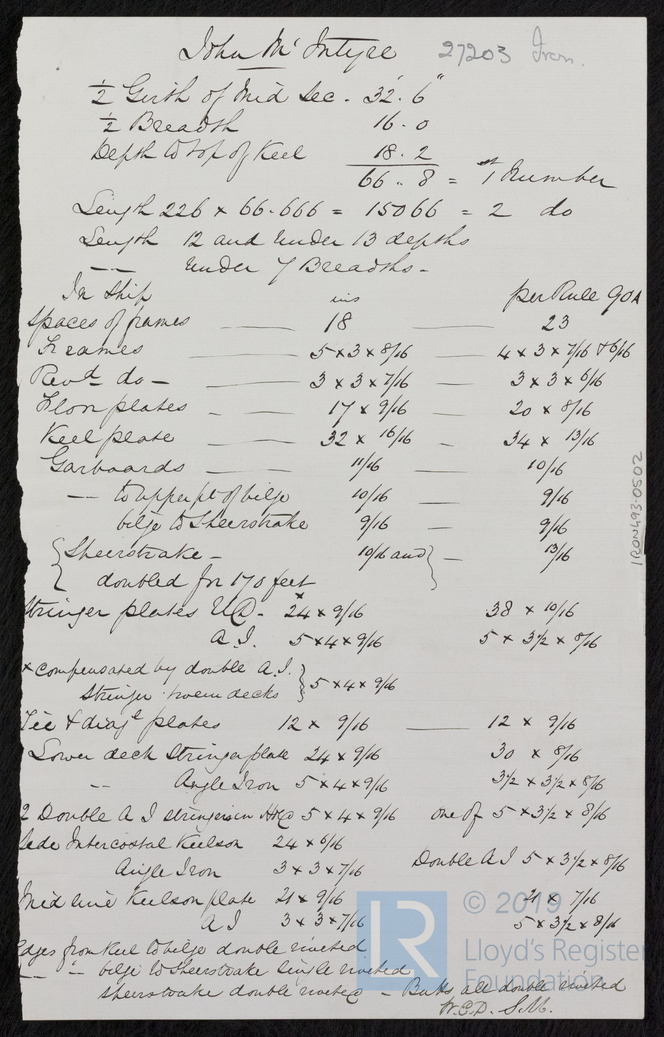 John McIntyre 27203 Iron.
½ Girth of Mid Sec. 32'. 6"
½ Breadth 16 . 0
Depth to top of Keel 18 . 2
66 .. 8 = 1st Number
Length 226 x 66.666 = 15066 = 2 do
Length 12 and under 13 depths
—— under 7 Breadths —
In Ship ins per Rule 90A
Spaces of frames —— 18 —— 23
Frames —— 5 x 3 x 8/16 — 4 x 3 x 7/16 & 6/16
Revd do — 3 x 3 x 7/16 — 3 x 3 x 6/16
Floor plates — 17 x 9/16 — 20 x 8/16
Keel plate —— 32 x 16/16 — 34 x 13/16
Garboards —— 11/16 —— 10/16
—— to upper pt of bilge 10/16 — 9/16
bilge to Sheerstrake 9/16 — 9/16
{ Sheerstrake — 10/16 and } — 13/16
doubled for 170 feet
Stringer plates U.D. x 24 x 9/16 38 x 10/16
A.I. 5 x 4 x 9/16 5 x 3½ x 8/16
x compensated by double A.I.
Stringer 'tween decks } 5 x 4 x 9/16
Tie & diagl plates 12 x 9/16 —— 12 x 9/16
Lower deck Stringer plate 24 x 9/16 30 x 8/16
-- Angle Iron 5 x 4 x 9/16 3½ x 3½ x 8/16
2 Double A I stringers in Hold 5 x 4 x 9/16 one of 5 x 3½ x 8/16
Side Intercostal Keelson 24 x 6/16
Angle Iron 3 x 3 x 7/16 Double A I 5 x 3½ x 8/16
Mid line Keelson plate 21 x 9/16 21 x 7/16
A I 3 x 3 x 7/16 5 x 3½ x 8/16
Edges from Keel to bilge double riveted
—— " — bilge to Sheerstrake single riveted
Sheerstrake double riveted — Butts all double riveted
W.C.D. S.M.
IRON493-0502
LR
© 2019
Lloyd's Register
Foundation